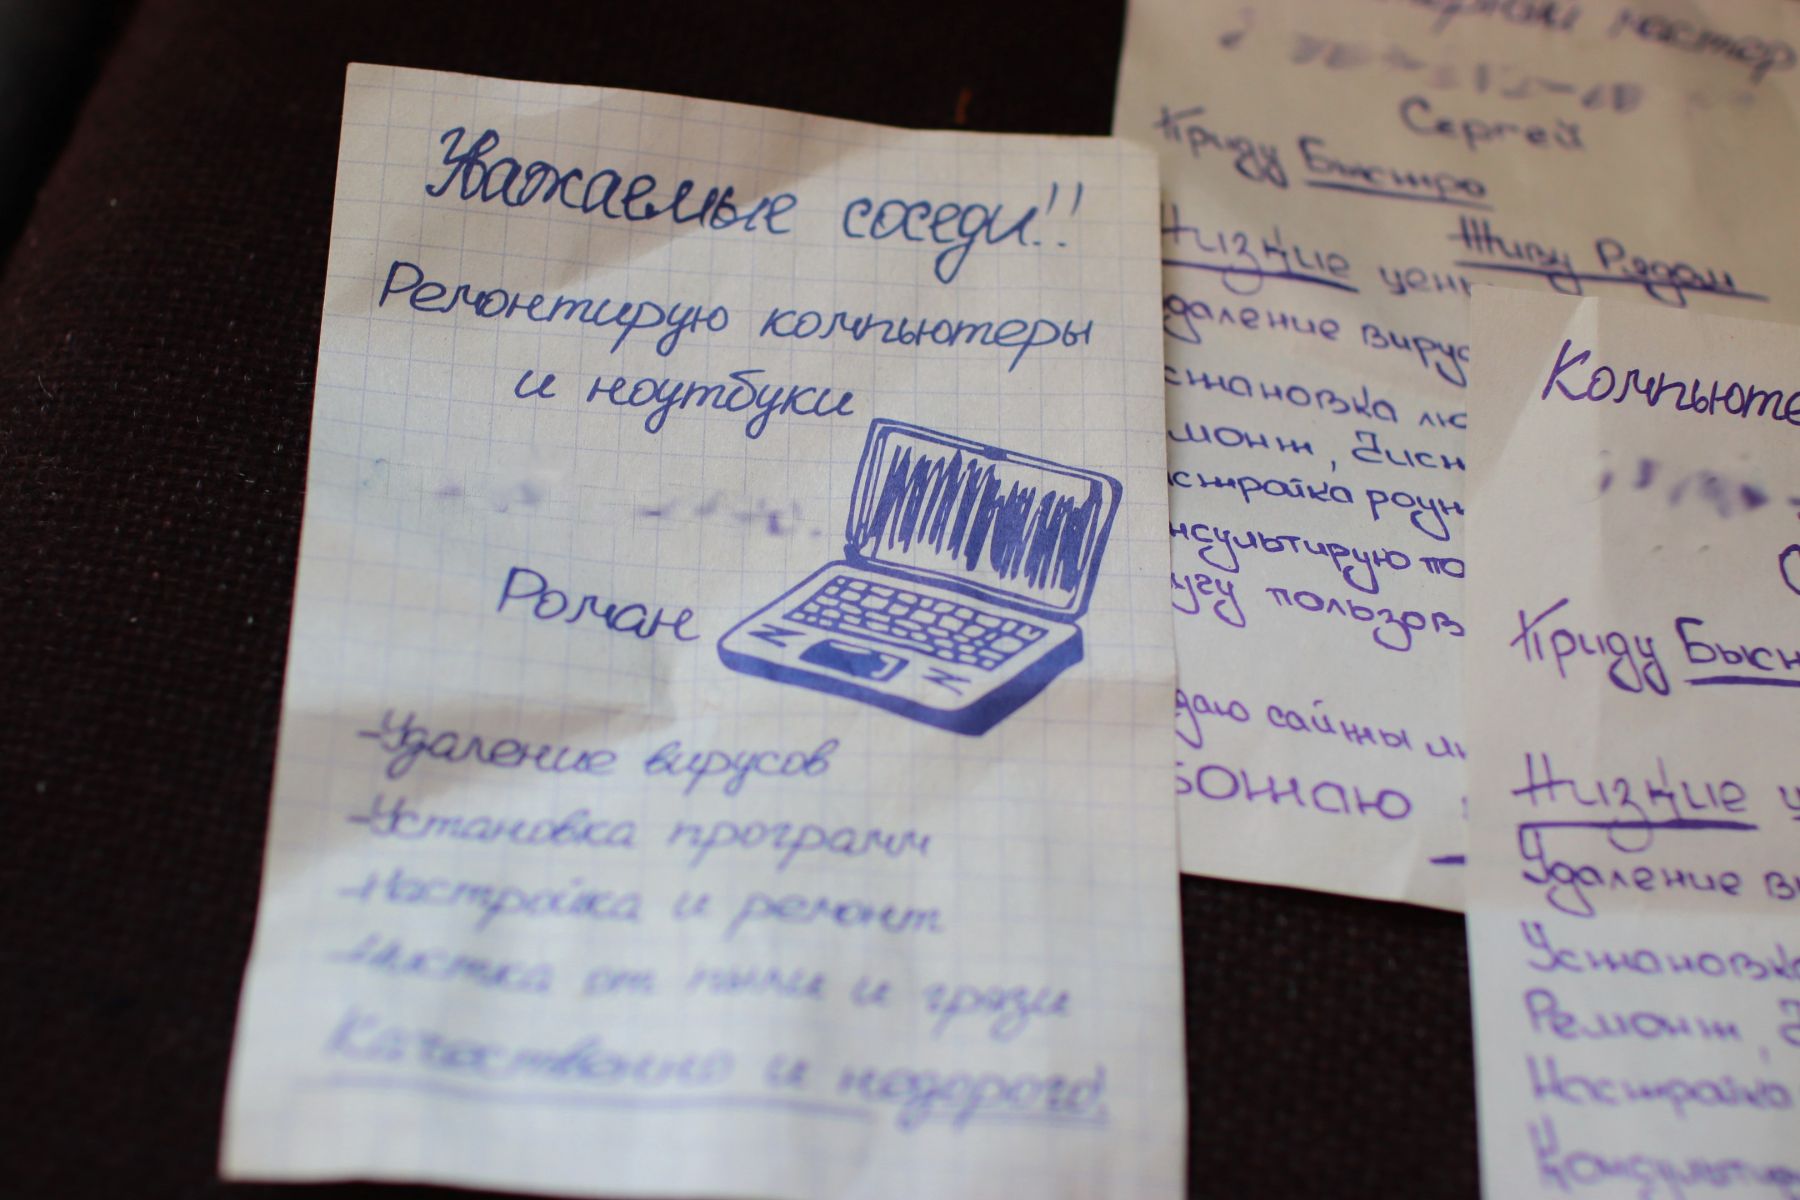 Уважаемые соседи!!
Ремонтирую компьютеры
и ноутбуки
Роман
-Удаление вирусов
-Установка программ
-Настройка и ремонт
-Чистка от пыли и грязи
Качественно и недорого!
мастер
Сергей
Приду Быстро
Живу Рядом
Низкие цен
даление вирус
становка лю
монт, Чист
стройка роут
нсультирую по
угу пользов
даю сайты лю
ботаю
Компьюте
Приду Быст
Низкие ц
Удаление ви
Установка
Ремонт, Ч
Настройка
Консультир